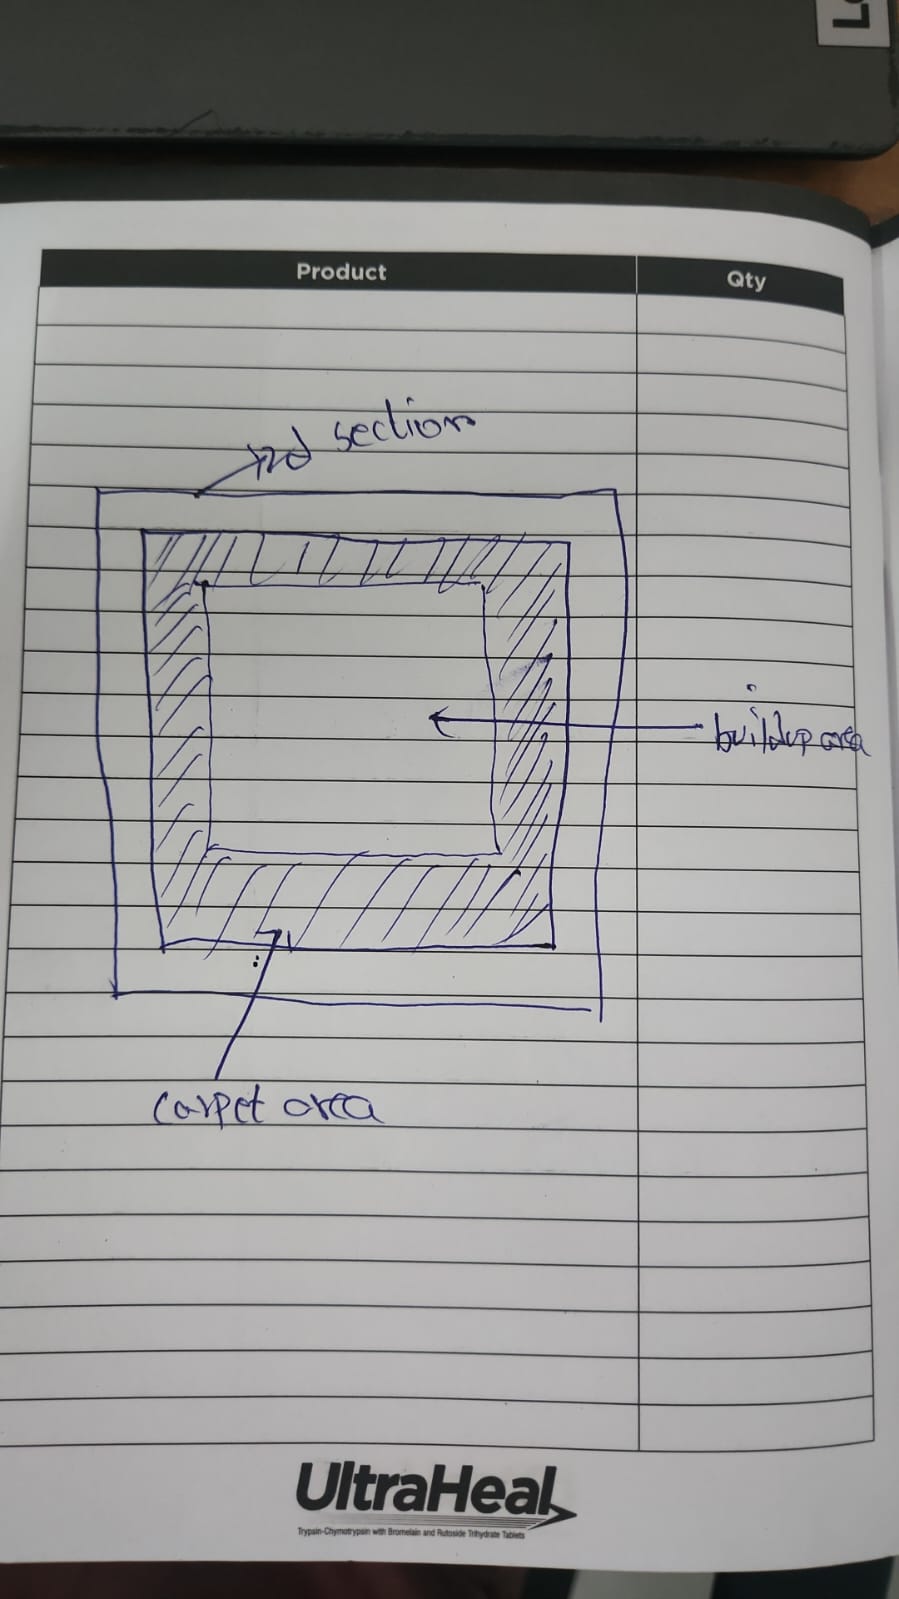 Product Qty
section
buildup area
carpet area
UltraHeal
Trypsin-Chymotrypsin with Bromelain and Rutoside Trihydrate Tablets